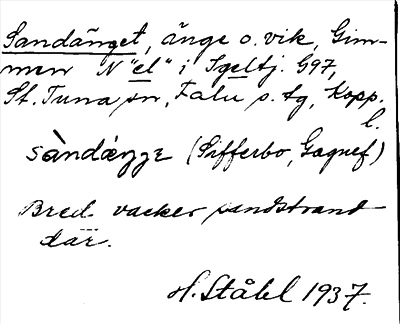 Sandänget, änge o. vik, Gim-
men N "el" i Sgeltj. G97,
St. Tuna sn, Falu s. tg, Kopp.
l.
(Sifferbo, Gagnef)
Bred vacker sandstrand
där.
H. Ståhl 1937.